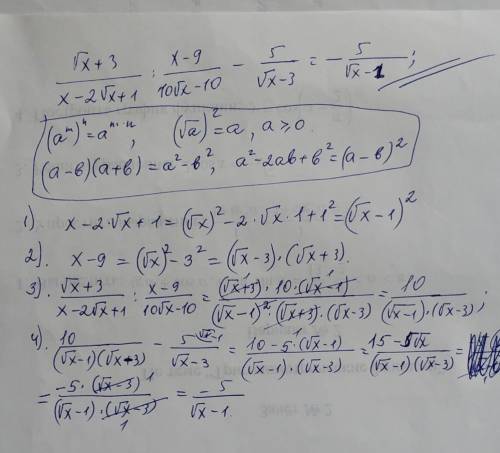 (√x + 3)/(x - 2√x + 1) : (x - 9)/(10√x - 10) - 5/(√x - 3) = - 5/(√x - 1);
(aᵐ)ⁿ = aᵐ·ⁿ, (√a)² = a, a ≥ 0
(a - в)(a + в) = a² - в², a² - 2aв + в² = (a - в)²
1) x - 2·√x + 1 = (√x)² - 2·√x·1 + 1² = (√x - 1)²
2). x - 9 = (√x)² - 3² = (√x - 3)·(√x + 3).
3). (√x + 3)/(x - 2√x + 1) : (x - 9)/(10√x - 10) = ((√x + 3)·10·(√x - 1))/((√x - 1)²·(√x + 3)·(√x - 3)) = 10/((√x - 1)·(√x - 3));
4). 10/((√x - 1)(√x + 3)) - 5 √x-1/(√x - 3) = (10 - 5·(√x - 1))/((√x - 1)·(√x - 3)) = (15 - 5√x)/((√x - 1)(√x - 3)) =
= (-5·(√x - 3) 1)/((√x - 1)·(√x - 3) 1) = -5/(√x - 1).